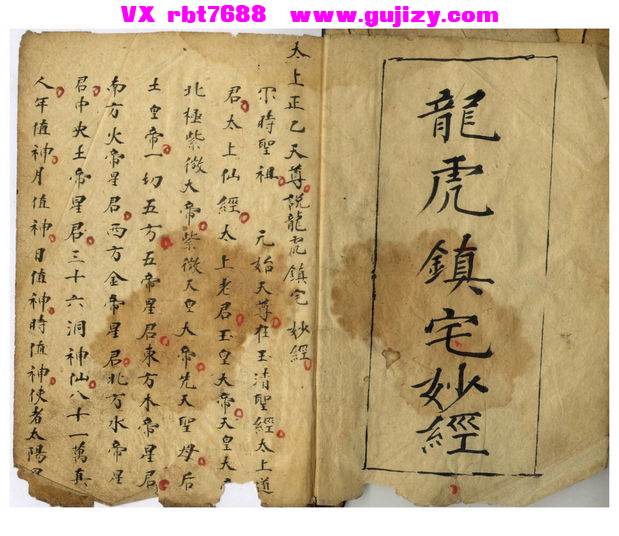 VX rbt7688 www.gujizy.com
龍虎鎮宅妙經
太上正乙天尊說龍虎鎮宅妙經
尒時聖祖元始天尊在玉清聖經太上道
君太上仙經太上老君玉皇大帝天皇大
北極紫微大帝紫微天皇大帝先天聖母后
土皇帝一切五方五帝星君東方木帝星君
南方火帝星君西方金帝星君北方水帝星
君中央土帝星君三十六洞神仙八十一萬真
人年值神月值神日值神時值神使者太陽